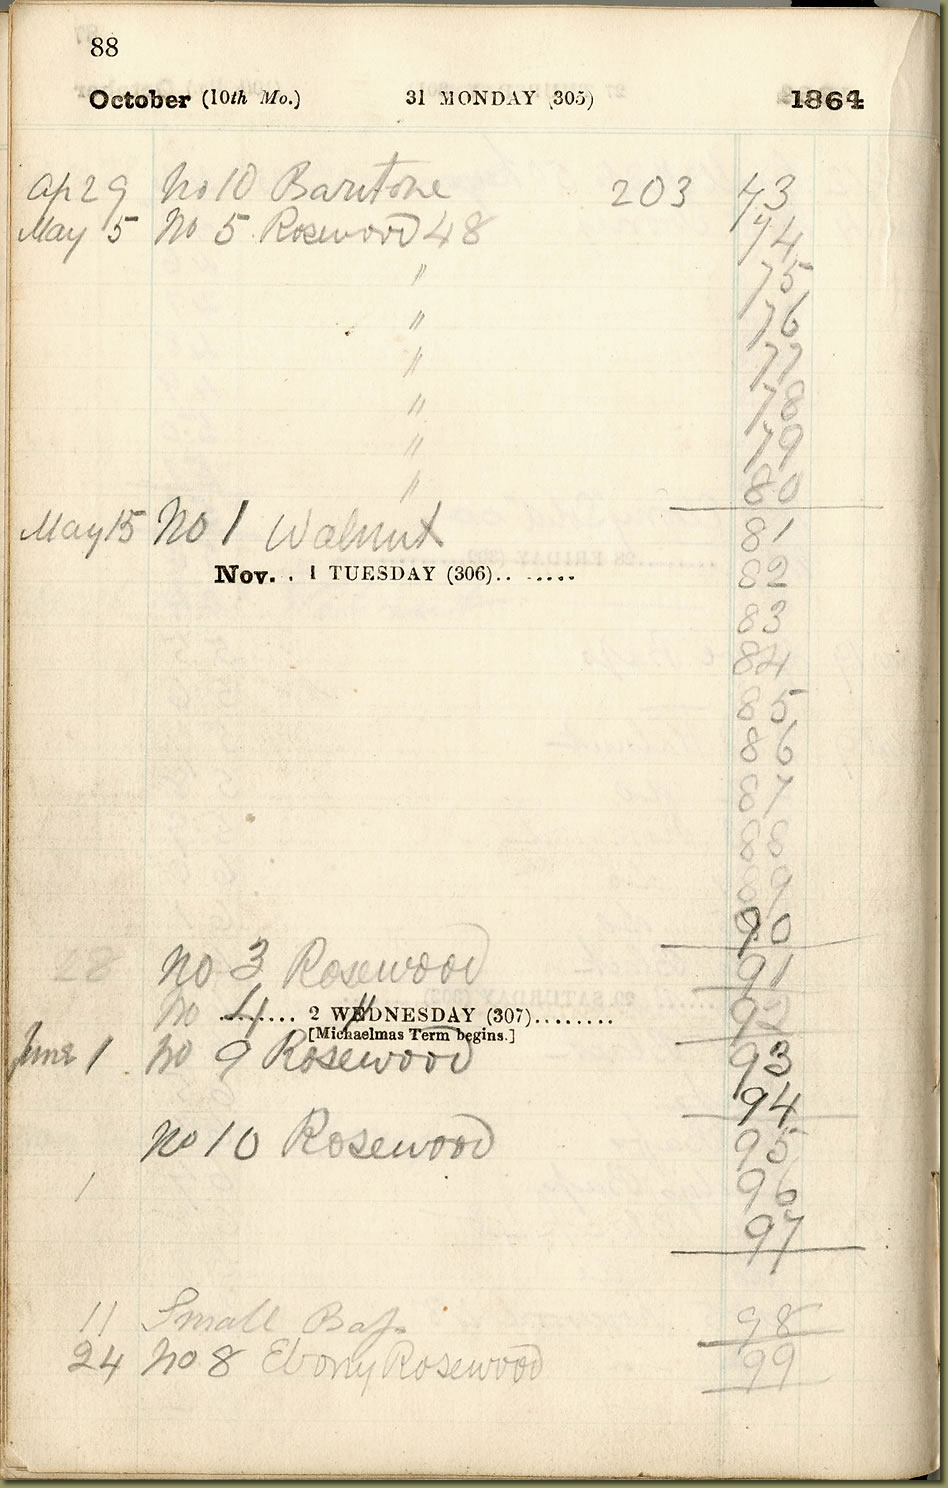 88
October (10th Mo.) 31 MONDAY (305) 1864
Ap 29 No 10 Baritone 203 73
May 5 No 5 Rosewood 48 74
" 75
" 76
" 77
" 78
" 79
" 80
May 15 No 1 Walnut 81
Nov. . 1 TUESDAY (306).. ...... 82
83
84
85
86
87
88
89
90
28 No 3 Rosewood 91
No 4 " 92
........ 2 WEDNESDAY (307)........
[Michaelmas Term begins.]
June 1 No 9 Rosewood 93
94
No 10 Rosewood 95
1 96
97
11 Small Bass 98
24 No 8 Ebony Rosewood 99